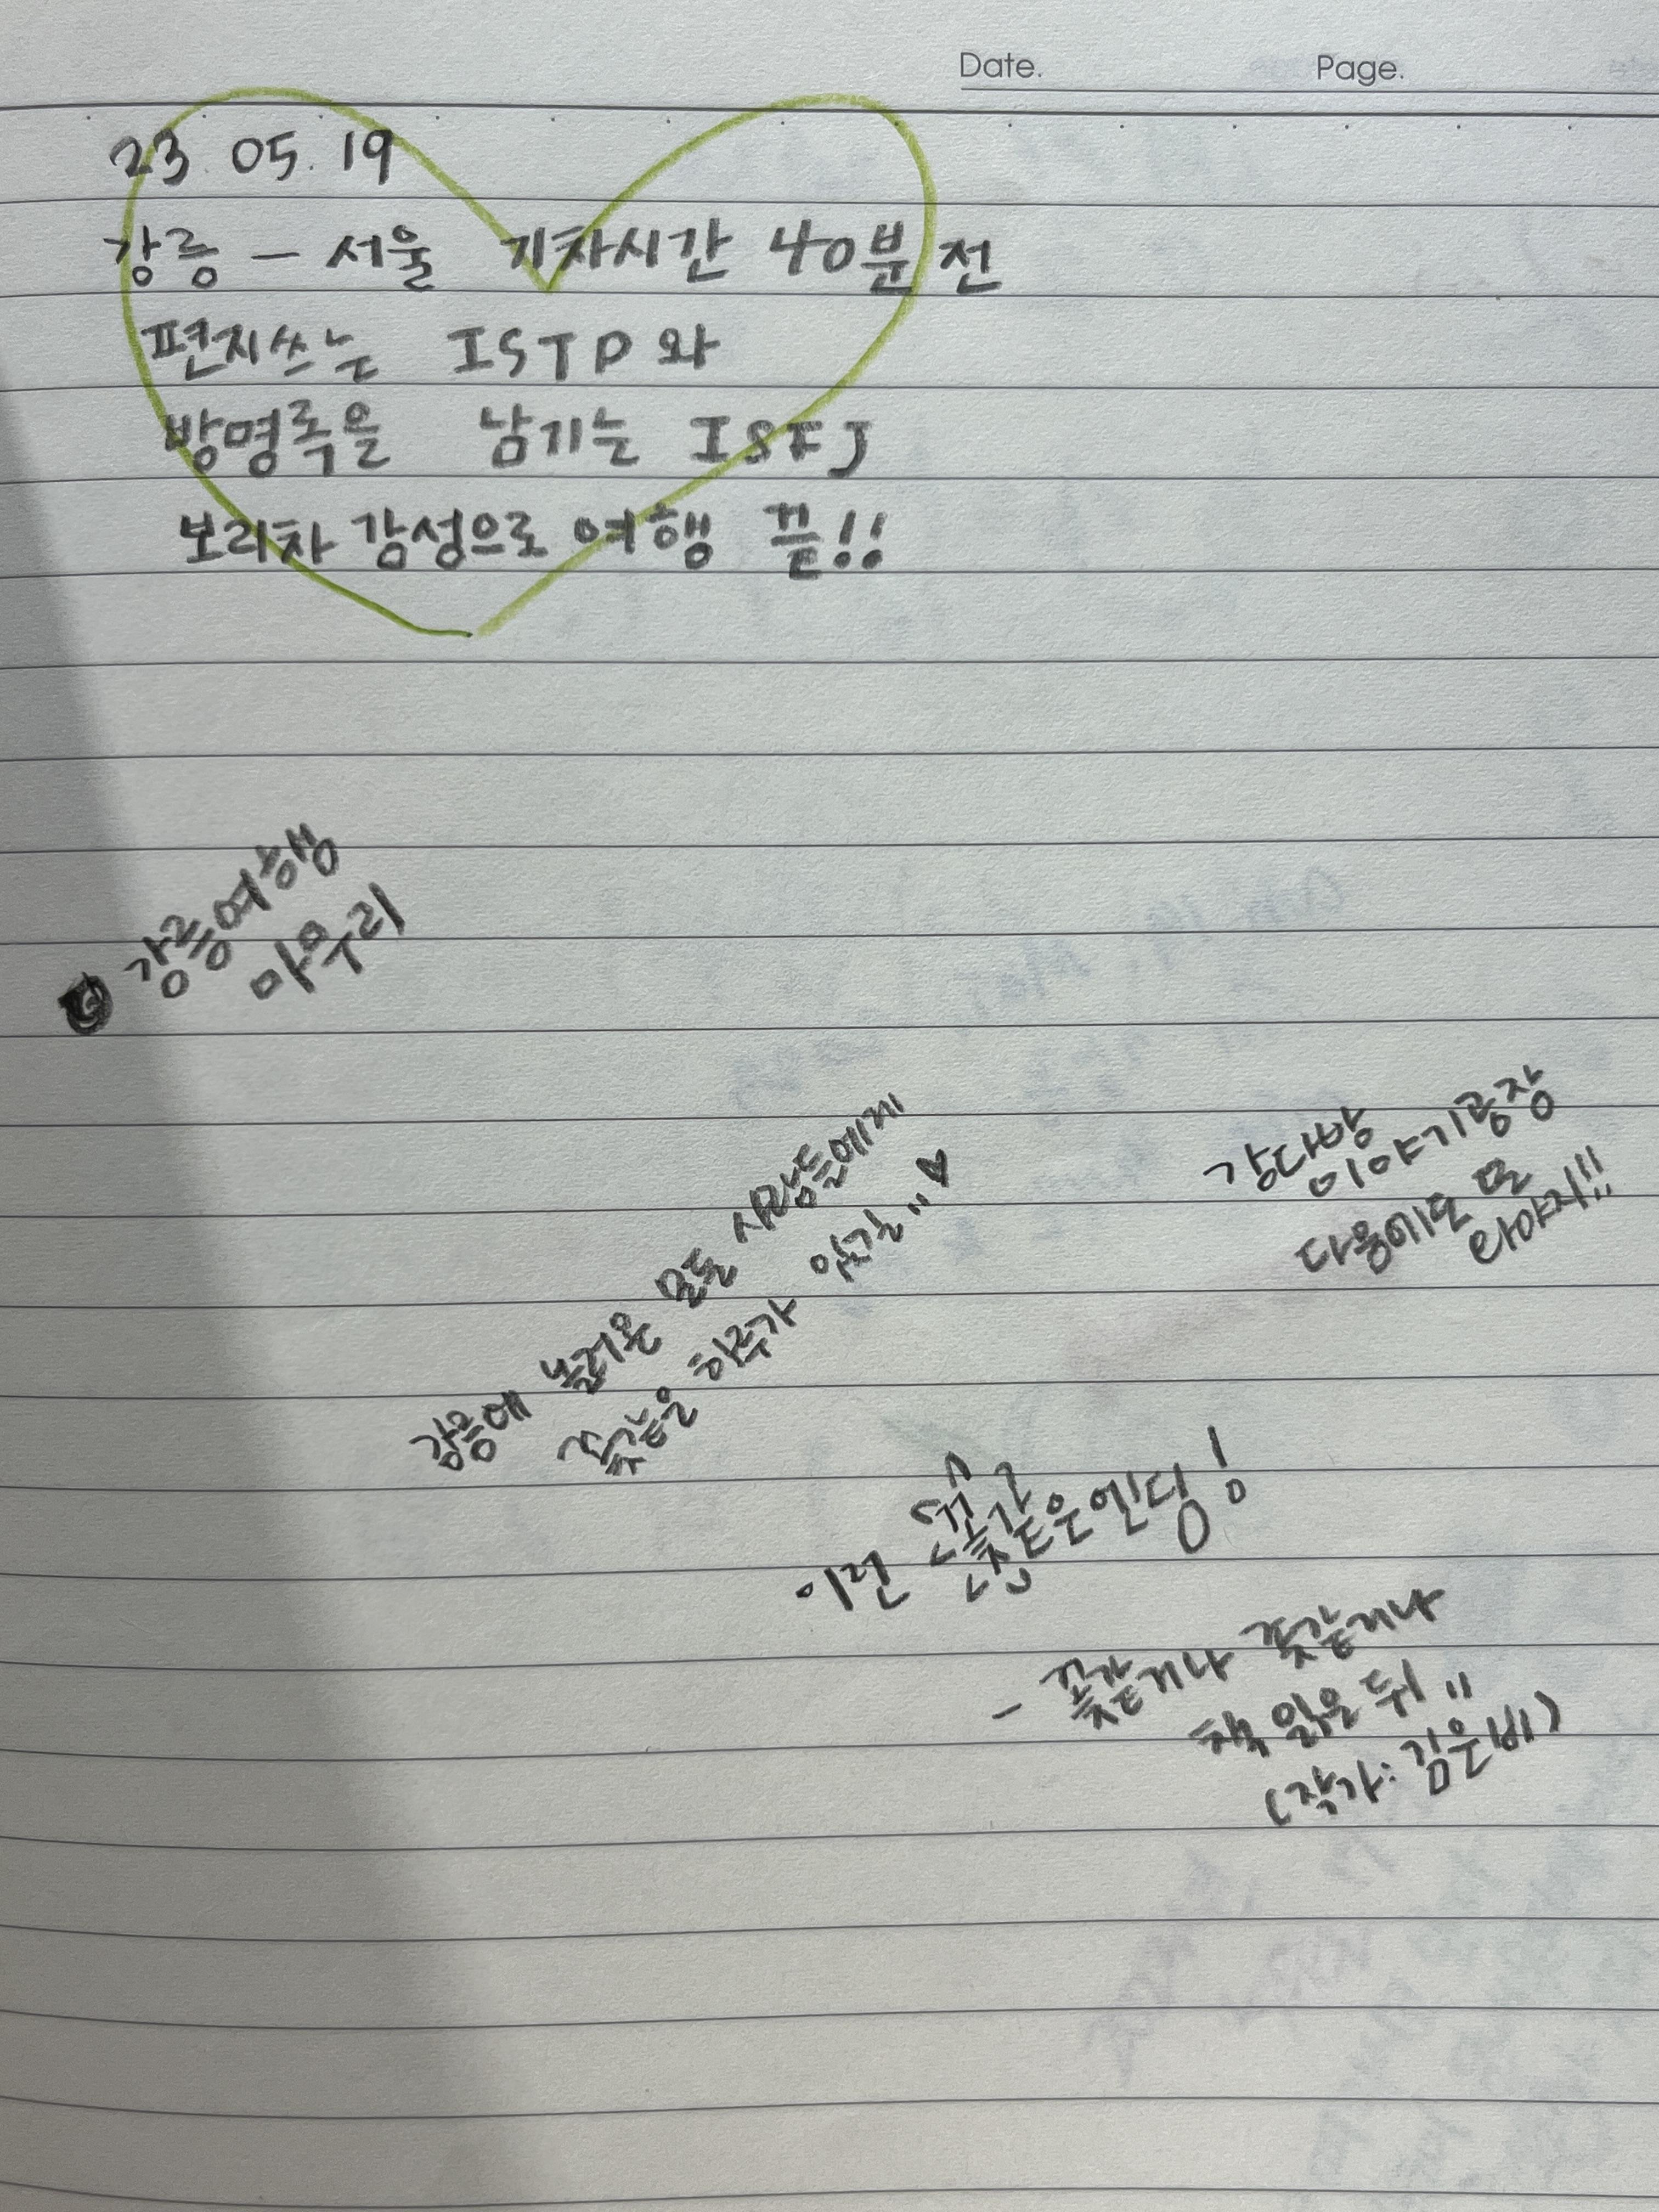 Date.
Page.
23. 05. 19
강릉 - 서울 기차시간 40분 전
편지쓰는 ISTP와
방명록을 남기는 ISFJ
보리차 감성으로 여행 끝!!
강릉여행
마무리
강릉에 놀러온 모든 사람들에게
꽃같은 하루가 있길.. ♥
강다방
이야기공장
다음에도 또
와야지!!
이런 꽃같은엔딩!
- 꽃같거나 좆같거나
책 읽은 뒤..
(작가: 김은비)